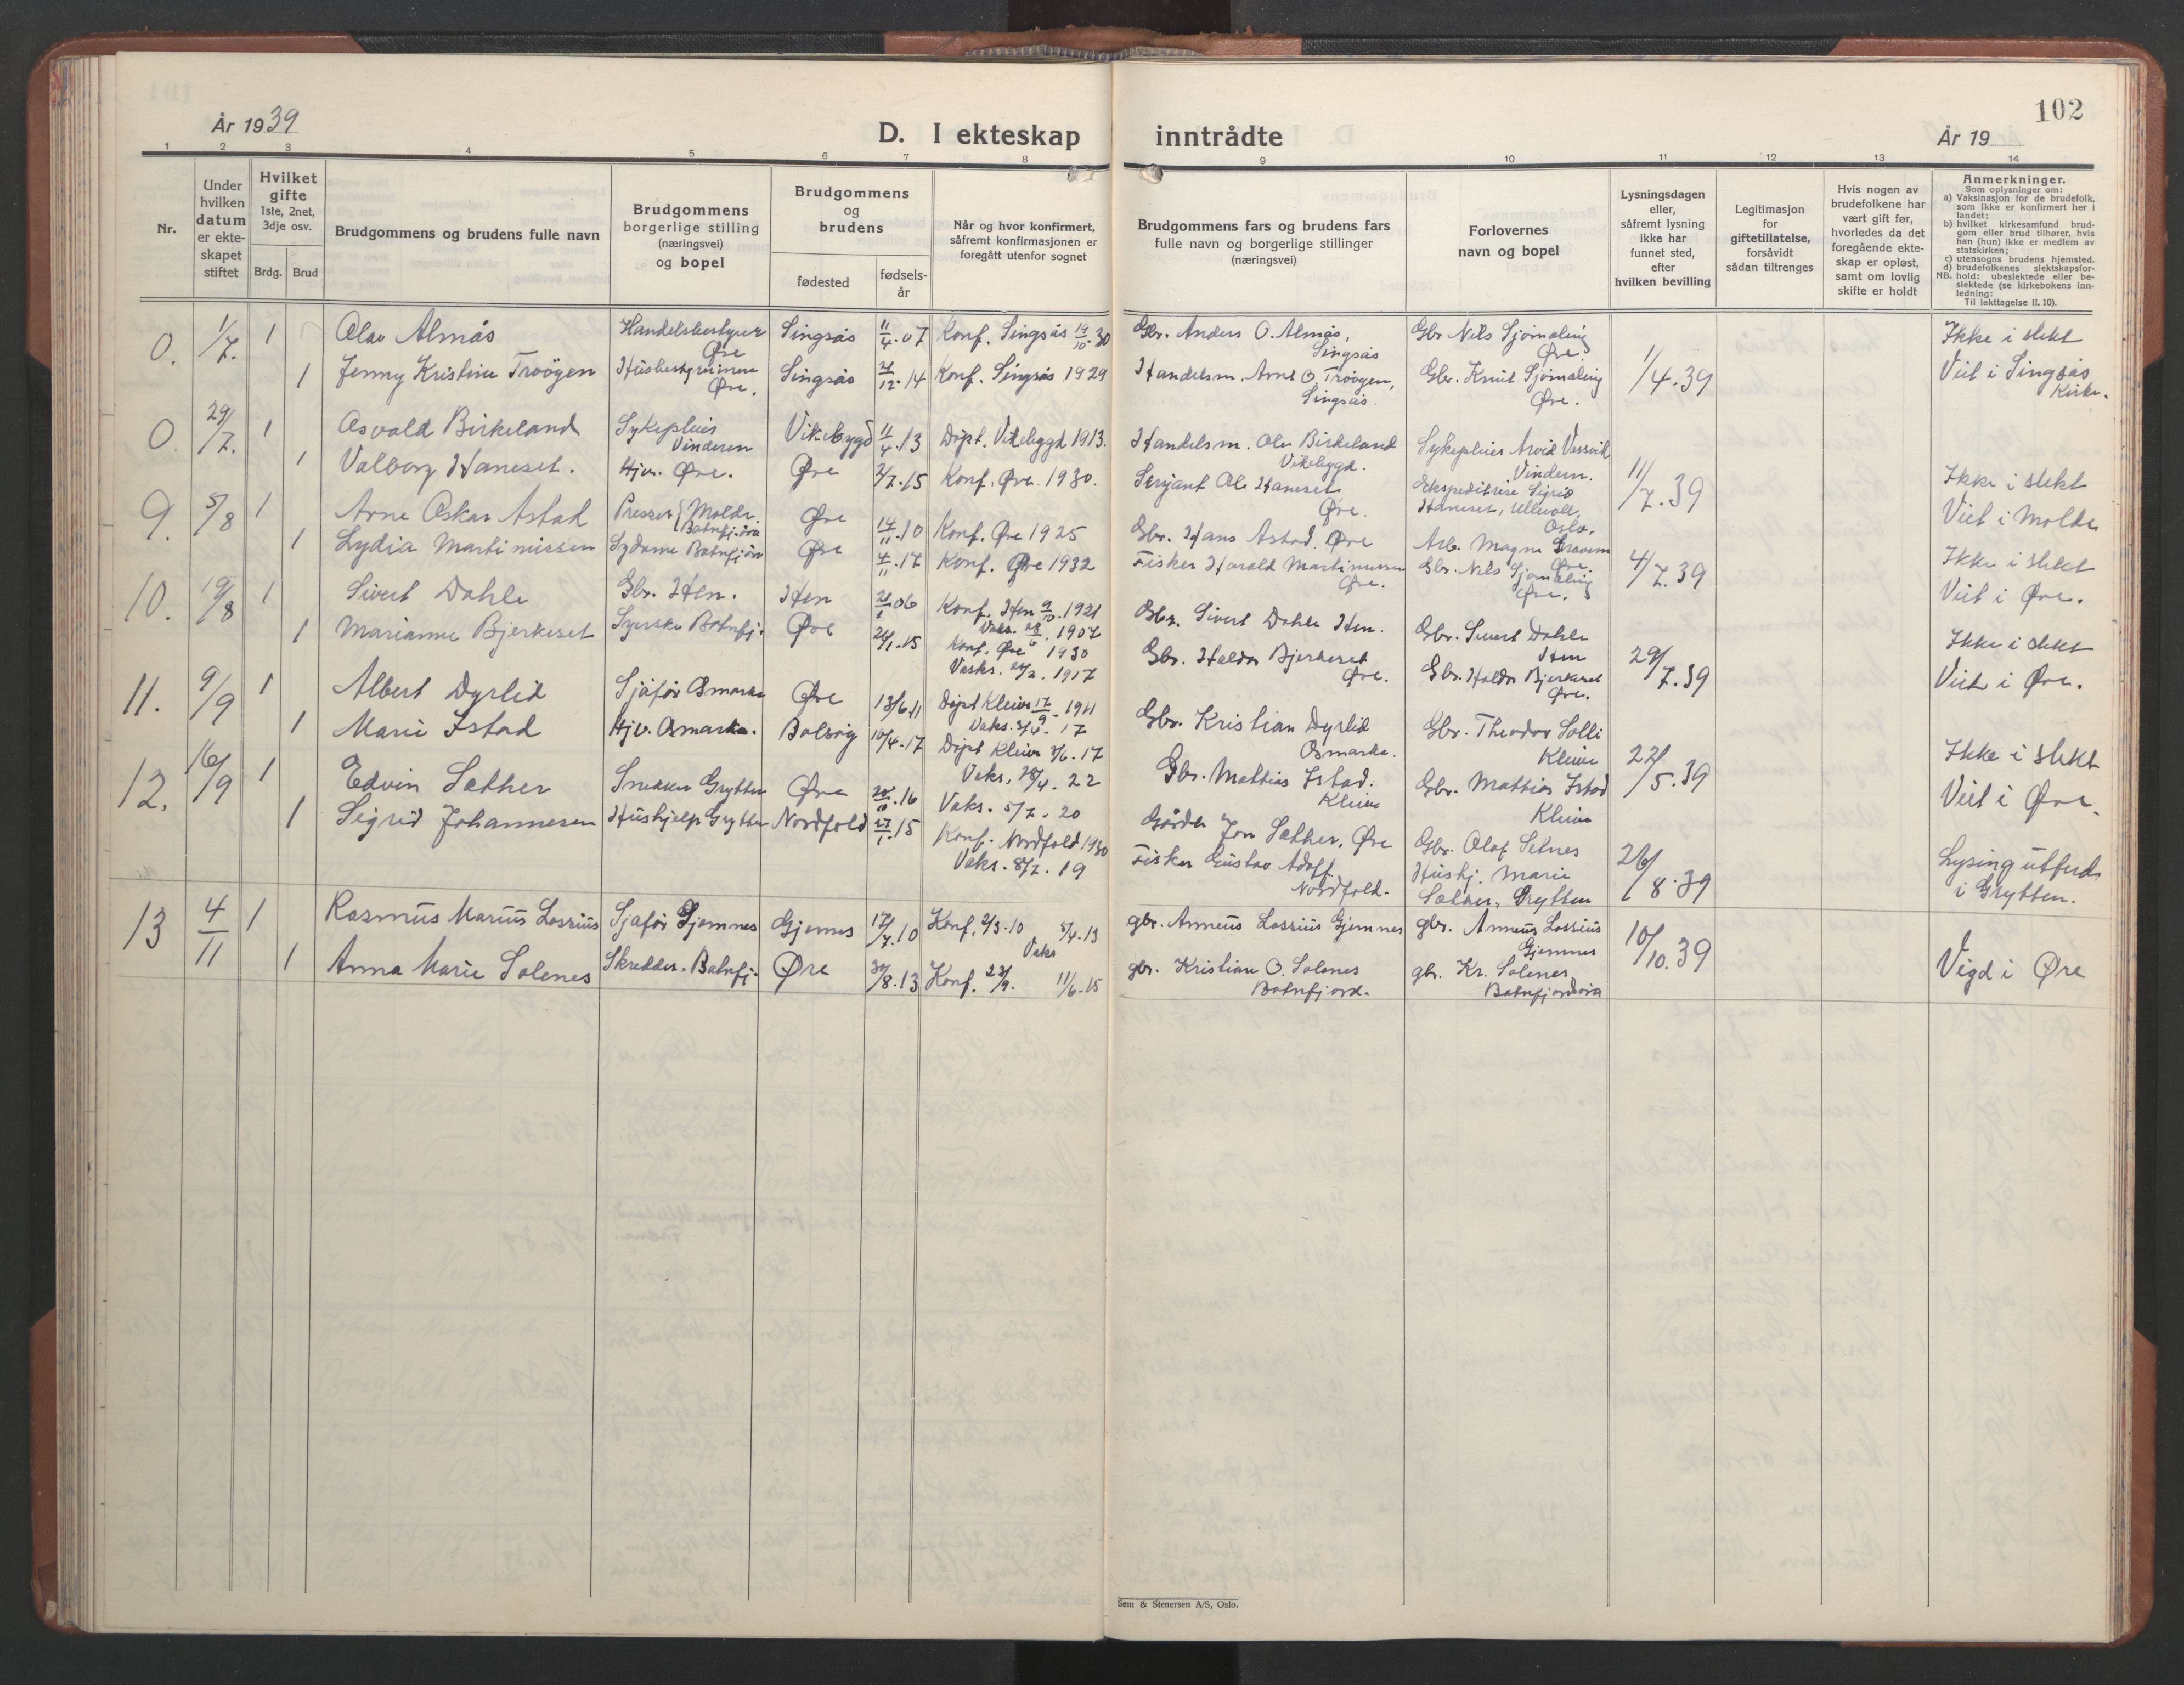 102
År 1939
D. I ekteskap inntrådte
År 19
1 2 3 4 5 6 7 8 9 10 11 12 13 14
Nr.
Under hvilken datum er ekteskapet stiftet
Hvilket gifte 1ste, 2net, 3dje osv.
Brdg. Brud
Brudgommens og brudens fulle navn
Brudgommens borgerlige stilling (næringsvei) og bopel
Brudgommens og brudens
fødested
fødselsår
Når og hvor konfirmert, såfremt konfirmasjonen er foregått utenfor sognet
Brudgommens fars og brudens fars fulle navn og borgerlige stillinger (næringsvei)
Forlovernes navn og bopel
Lysningsdagen eller, såfremt lysning ikke har funnet sted, efter hvilken bevilling
Legitimasjon for giftetillatelse, forsåvidt sådan tiltrenges
Hvis nogen av brudefolkene har vært gift før, hvorledes da det foregående ekteskap er opløst, samt om lovlig skifte er holdt
Anmerkninger.
Som oplysninger om:
a) Vaksinasjon for de brudefolk, som ikke er konfirmert her i landet;
b) hvilket kirkesamfund brudgom eller brud tilhører, hvis han (hun) ikke er medlem av statskirken;
c) utensogns brudens hjemsted.
d) brudefolkenes slektskapsforhold: ubeslektede eller beslektede (se kirkebokens innledning:
NB.
Til iakttagelse II. 10).
0. 1/7. 1 Olav Almås Handelsbestyrer Øre Singsås 11/4.07 Konf. Singsås 19/10.30 Gbr. Anders O. Almås, Singsås Gbr Nils Sjømæling Øre. 1/4.39 Ikke i slekt
1 Jenny Kristine Troøgen Husbestyrerinne Øre. Singsås 21/12.14 Konf. Singsås 1929 Handelsm. Arne O. Trøøgen, Singsås. Gbr. Knut Sjømæling Øre. Viet i Singsås Kirke.
0. 29/7. 1 Asvald Birkeland Sykepleier Vinderen Vikebygd 11/4.13 Døpt. Vikebygd 1913. Handelsm. Ole Birkeland Vikebygd. Sykepleier Arvid Vassvik Vindern. 11/7.39 Ikke i slekt
1 Valborg Haneset. Hjv. Øre. Øre 2/7.15 Konf. Øre. 1930. Serjant Ole Haneset Øre. Ekspeditrise Sigrid Haneset, Ullevoll, Oslo. Viet i Molde
9. 5/8 1 Arne Oskar Astad Presser Molde Batnfj.øra Øre 14/11.10 Konf. Øre 1925 Gbr. Hans Astad. Øre Arb. Magne Øre. 4/7.39 Ikke i slekt
1 Lydia Martinussen Sydame Batnfjør Øre 4/11.17 Konf. Øre 1932 Fisker Harald Martinussen Øre. Gbr. Nils Sjømæling Øre. Viet i Øre.
10. 19/8 1 Sivert Dahle Gbr. Hen. Hen 21/1.06 Konf. Hen 9/10.1921 Vaks. 1907 Gbr. Sivert Dahle Hen. Gbr. Sivert Dahle Hen 29/7.39 Ikke i slekt
1 Marianne Bjerkeset Syerske Batnfj. Øre 24/1.15 Konf. Øre 1930 Vaks. 1917 Gbr. Haldor Bjerkeset Øre. Gbr. Haldor Bjerkeset Øre. Viet i Øre.
11. 9/9 1 Albert Dyrlid Sjåfør Osmarka Øre 13/6.11 Døpt Kleive 17/9-1911 Vaks. 17 Gbr. Kristian Dyrlid Osmarka. Gbr. Theodor Solli Kleive 22/5.39 Ikke i slekt
1 Marie Istad Hjv. Osmarka. Bolsøy 10/4.17 Døpt Kleive 3/6.17 Vaks. 28/4. 22 Gbr. Mattias Istad. Kleive Gbr. Mattias Istad Kleive Viet i Øre.
12. 16/9 1 Edvin Sæther Snekker Grytten Øre .16 Vaks. 5/7. 20 Gårdbr Jon Sæther, Øre Gbr. Olaf Setnes 26/8.39 Lysing utferd i Grytten.
1 Sigrid Johannesen Hushjelp Grytten Nordfold 27/1.15 Konf. Nordfold 1930 Vaks. 8/7. 19 Fisker Gustav Adolf Nordfold. Hushj. Marie Sæther, Grytten
13 4/11 1 Rasmus Marius Lossius Sjåfør Gjemnes Gjemnes 17/4.10 Konf. 2/3-10 Vaks 5/4.13 gbr. Anneus Lossius Gjemnes gbr. Anneus Lossius Gjemnes 10/10.39 Vigd i Øre
1 Anna Marie Solenes Skredder. Batnfj. Øre 30/8.13 Konf. 23/9. 11/6.15 gbr. Kristian O. Solenes Batnfjord. gbr. Kr. Solenes Batnfjordøra
Sem & Stenersen A/S, Oslo.